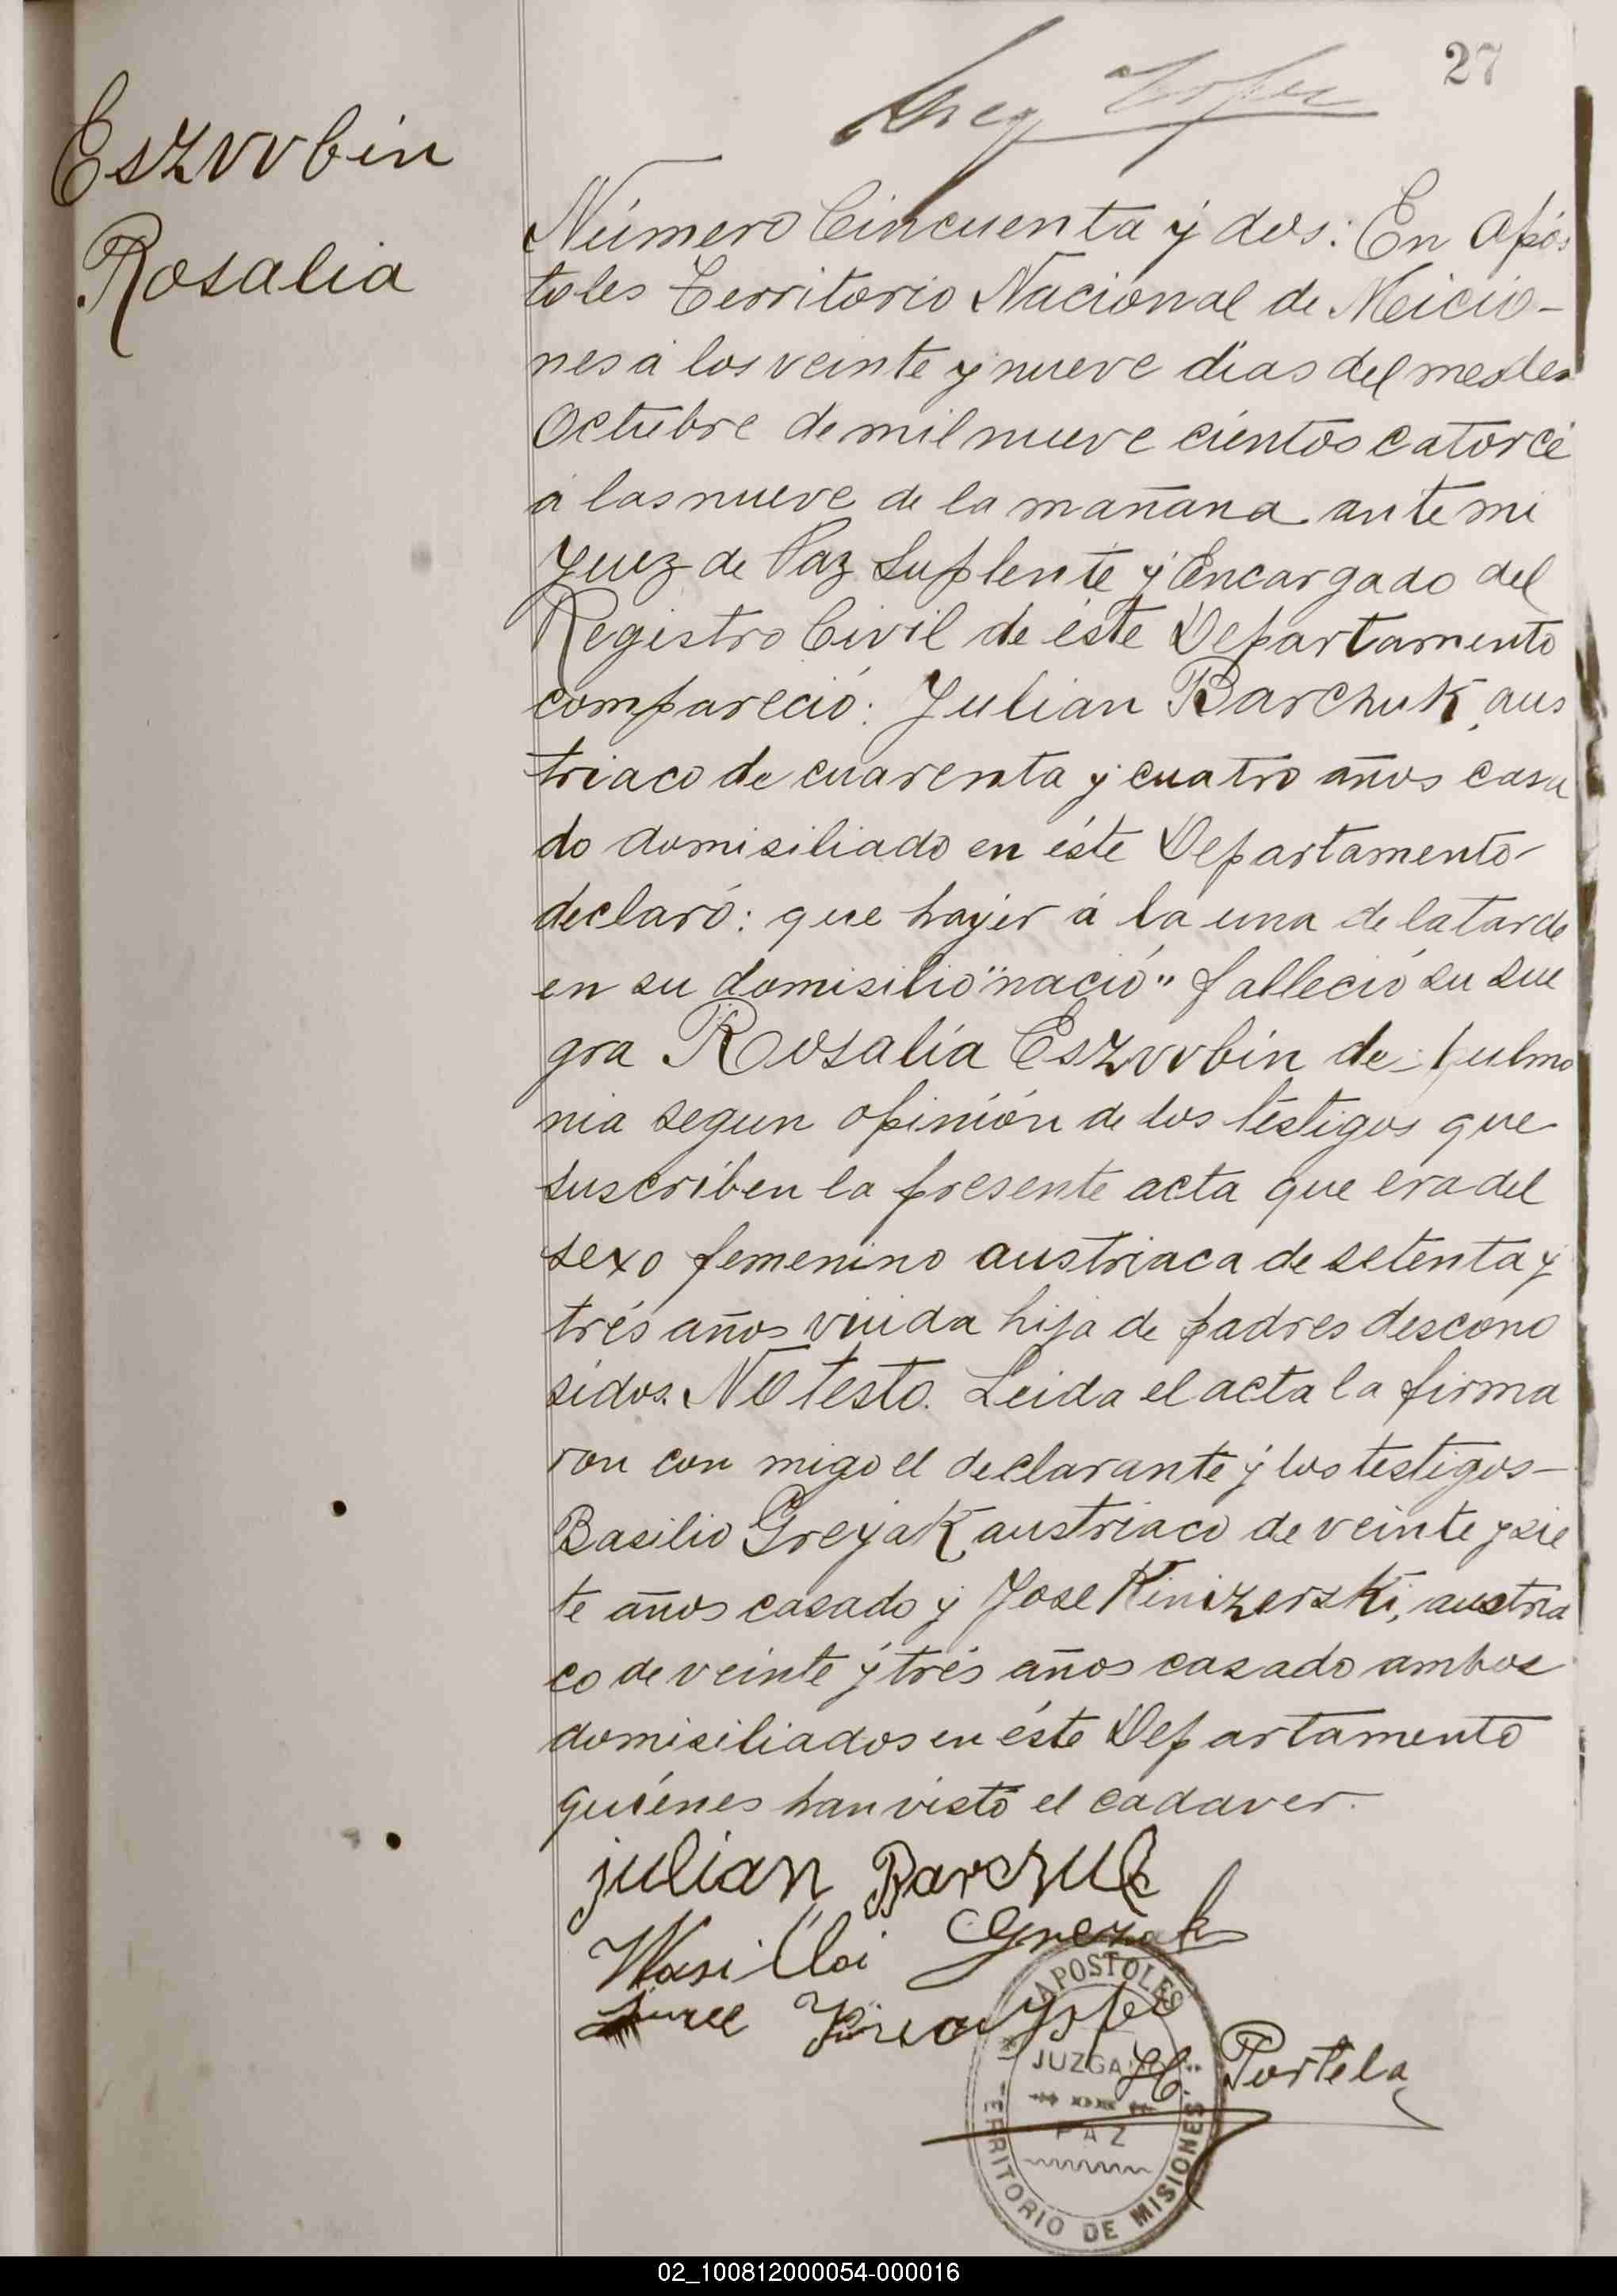 27
Eszvvbin
Rosalia
Número Cincuenta y dos: En Após
toles Territorio Nacional de Micio-
nes á los veinte y nueve dias del mes de
Octubre de mil nueve cientos catorce
á las nueve de la mañana ante mi
Juez de Paz Suplente y Encargado del
Registro Civil de éste Departamento
compareció: Julian Barchuk, aus
triaco de cuarenta y cuatro años casa
do domisiliado en éste Departamento
declaró: que hayer á la una de la tarde
en su domisilio "nació" falleció su sue
gra Rosalia Eszvvbin de pulmo
nia segun opinión de los testigos que
suscriben la presente acta que era del
sexo femenino austriaca de setenta y
trés años viuda hija de padres descono
sidos. No testo. Leida el acta la firma
ron con migo el declarante y los testigos-
Basilio Greyak, austriaco de veinte y sie
te años casado y Jose Kinizerski, austria
co de veinte y trés años casado ambos
domisiliados en éste Departamento
quiénes han visto el cadaver.
julian Barczuk
Wasilloi Grezak
H. Portela
APOSTOLES
JUZGADO
PAZ
TERRITORIO DE MISIONES
02_100812000054-000016